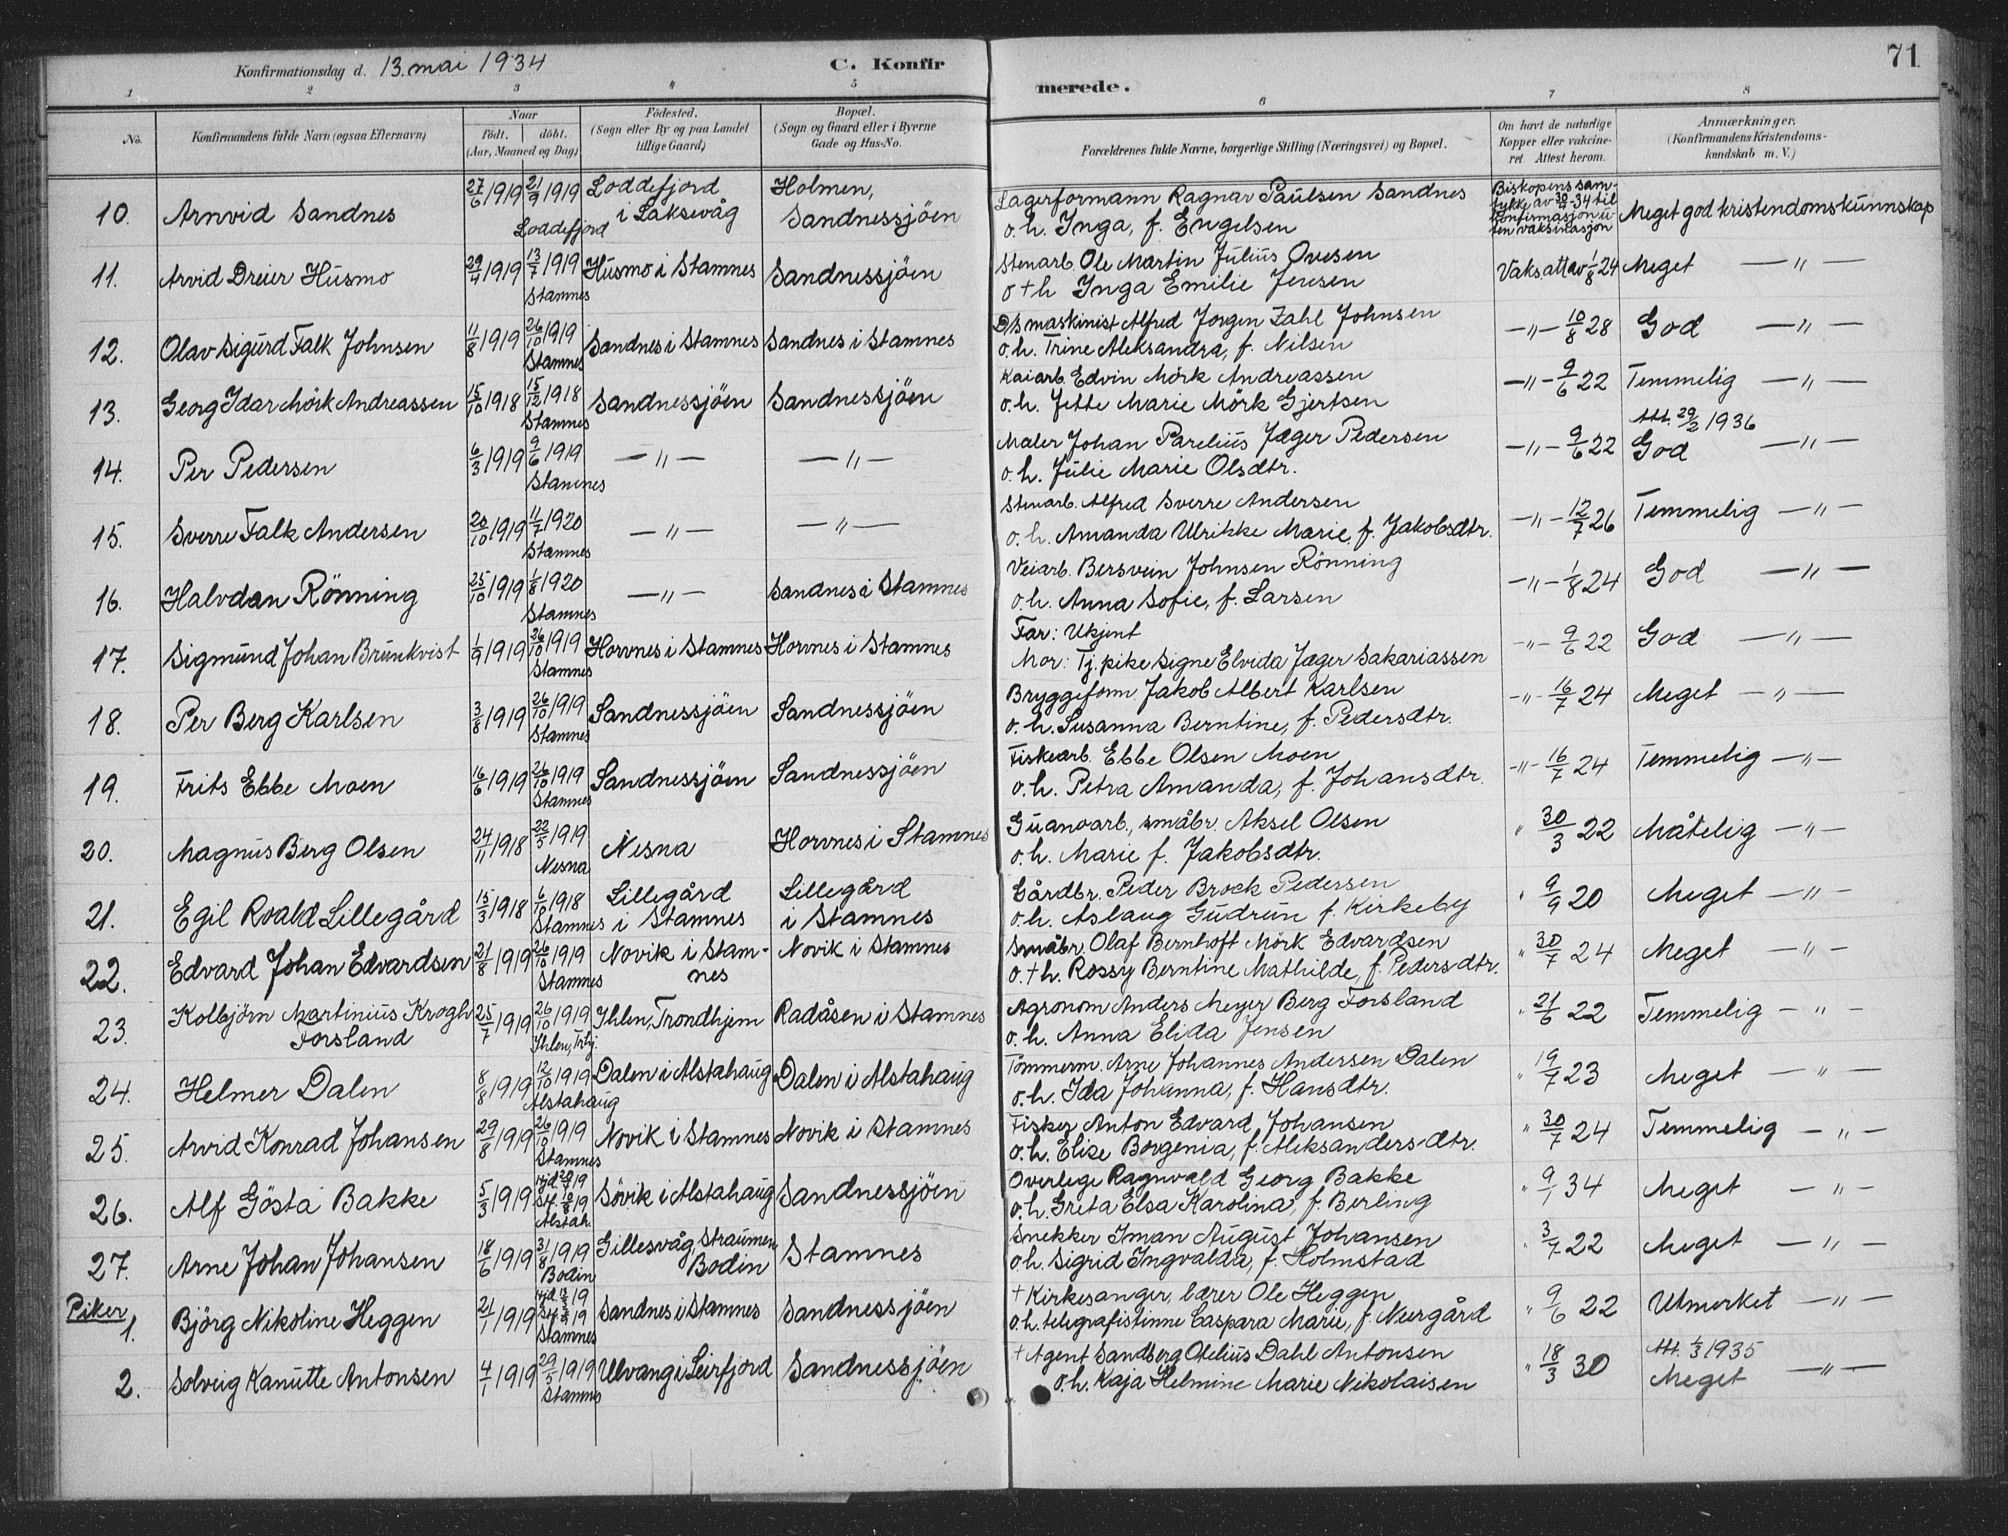 Konfirmationsdag d. 13. mai 1934
C. Konfirmerede.
71
1 2 3 4 5 6 7 8
No. Konfirmandens fulde Navn (ogsaa Efternavn) Naar født. døbt. (Aar, Maaned og Dag) Fødested. (Sogn eller By og paa Landet tillige Gaard) Bopæl. (Sogn og Gaard eller i Byerne Gade og Hus-No. Forældrenes fulde Navne, borgerlige Stilling (Næringsvei) og Bopæl. Om havt de naturlige Kopper eller vakcineret. Attest herom. Anmærkninger. (Konfirmandens Kristendomskundskab m. V.)
10. Arnvid Sandnes 27/6 1919 21/9 1919 Loddefjord Loddefjord i Laksevåg Holmen, Sandnessjöen Lagerformann Ragnar Paulsen Sandnes o.h. Inga, f. Engelsen Biskopens samtykke av 30/4-34 til konfirmasjon uten vaksinasjon Meget god kristendomskunnskap
11. Arvid Dreier Husmo 29/4 1919 13/7 1919 Stamnes Husmo i Stamnes Sandnessjöen Stenarb. Ole Martin Julius Ovesen o + h Inga Emilie Jensen Vaks.att av 1/8 24 Meget —"—
12. Olav Sigurd Falk Johnsen 11/8 1919 26/10 1919 Stamnes Sandnes i Stamnes Sandnes i Stamnes D/S maskinist Alfred Jorgen Zahl Johnsen o.h. Trine Aleksandra, f. Nilsen —"— 10/8 28 God —"—
13. Georg Idar Mörk Andreassen 15/10 1918 15/12 1918 Stamnes Sandnessjöen Sandnessjöen Kaiarb. Edvin Mörk Andreassen o.h. Jette Marie Mörk Gjertsen —"— 9/6 22 Temmelig —"—
14. Per Pedersen 6/3 1919 9/6 1919 Stamnes —"— —"— Maler Johan Parelius Jæger Pedersen o.h. Julie Marie Olsdtr. —"— 9/6 22 Att. 29/2 1936 God —"—
15. Sverre Falk Andersen 20/10 1919 11/7 1920 Stamnes —"— —"— Stenarb. Alfred Sverre Andersen o.h. Amanda Ulrikke Marie, f. Jakobsdtr. —"— 12/7 26 Temmelig —"—
16. Halvdan Rönning 25/10 1919 1/8 1920 Stamnes —"— Sandnes i Stamnes Veiarb. Bersvein Johnsen Rönning o.h. Anna Sofie, f. Larsen —"— 1/8 24 God —"—
17. Sigmund Johan Brunkvist 1/9 1919 26/10 1919 Stamnes Horvnes i Stamnes Horvnes i Stamnes Far: Ukjent Mor: Tj.pike Signe Elvida Jæger Sakariassen —"— 9/6 22 God —"—
18. Per Berg Karlsen 3/8 1919 26/10 1919 Stamnes Sandnessjöen Sandnessjöen Bryggeform. Jakob Albert Karlsen o.h. Susanna Berntine, f. Pedersdtr. —"— 16/7 24 Meget —"—
19. Frits Ebbe Moen 16/6 1919 26/10 1919 Stamnes Sandnessjöen Sandnessjöen Fiskearb. Ebbe Olsen Moen o.h. Petra Amanda, f. Johansdtr. —"— 16/7 24 Temmelig —"—
20. Magnus Berg Olsen 24/11 1918 22/5 1919 Nesna Nesna Horvnes i Stamnes Guanoarb., småbr. Aksel Olsen o.h. Marie f. Jakobsdtr. " 30/3 22 Måtelig —"—
21. Egil Roald Lillegård 15/3 1918 1918 Stamnes Lillegård i Stamnes Lillegård i Stamnes Gårdbr. Peder Brock Pedersen o.h. Aslaug Gudrun f. Kirkeby " 9/9 20 Meget —"—
22. Edvard Johan Edvardsen 21/8 1919 26/10 1919 Stamnes Novik i Stamnes Novik i Stamnes Småbr. Olaf Bernhoft Mörk Edvardsen o.+h. Rossy Berntine Mathilde, f. Pedersdtr. " 30/7 24 Meget —"—
23. Kolbjörn Martinius Krogh Forsland 25/7 1919 26/10 1919 Ihlen, Trhj. Ihlen, Trondhjem Radåsen i Stamnes Agronom Anders Meyer Berg Forsland o.h. Anna Elida Jensen " 21/6 22 Temmelig —"—
24. Helmer Dalen 8/8 1919 12/10 1919 Alstahaug Dalen i Alstahaug Dalen i Alstahaug Tömmerm. Arne Johannes Andersen Dalen o.h. Ida Johanna, f. Hansdtr. " 19/7 23 Meget —"—
25. Arvid Konrad Johansen 29/8 1919 26/10 1919 Stamnes Novik i Stamnes Novik i Stamnes Fisker Anton Edvard Johansen o.h. Elise Borgenia, f. Aleksandersdtr. " 30/7 24 Temmelig —"—
26. Alf Gösta Bakke 5/3 1919 Alstah. Sövik i Alstahaug Sandnessjöen Overlege Ragnvald Georg Bakke o.h. Greta Elsa Karolina, f. Berling " 9/1 34 Meget —"—
27. Arne Johan Johansen 18/6 1919 31/8 1919 Bodin Gillesvåg, Straumen Bodin Stamnes Snekker Iman August Johansen o.h. Sigrid Ingvalda, f. Holmstad " 3/7 22 Meget —"—
Piker
1. Björg Nikoline Heggen 21/1 1919 Stamnes Sandnes i Stamnes Sandnessjöen + Kirkesanger, lærer Ole Heggen o.h. telegrafistinne Caspara Marie, f. Neergård " 9/6 22 Utmerket —"—
2. Solveig Kanutte Antonsen 4/1 1919 29/5 1919 Stamnes Ulvang i Leirfjord Sandnessjöen + Agent Sandberg Otelius Dahl Antonsen o.h. Kaja Helmine Marie Nikolaisen " 18/3 30 Att. 1/3 1935 Meget —"—